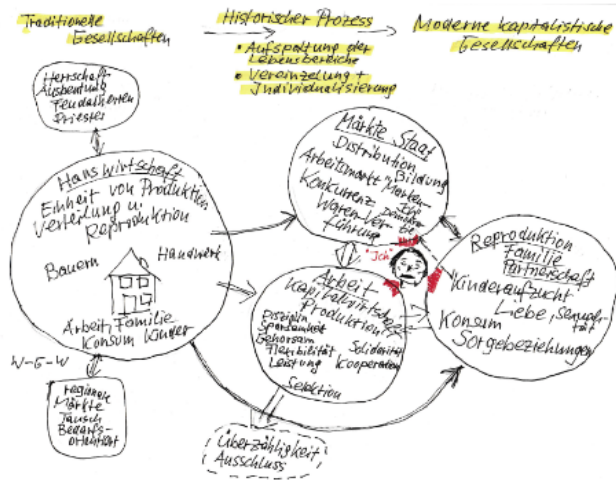 Traditionelle
Gesellschaften
Historischer Prozess
• Aufspaltung der
Lebensbereiche
• Vereinzelung +
Individualisierung
Moderne kapitalistische
Gesellschaften
Herrschaft
Ausbeutung
Feudalherren
Priester
Hauswirtschaft
Einheit von Produktion
Verteilung u.
Reproduktion
Bauern
Handwerk
Arbeit, Familie
Konsum Kinder
W-G-W
regionale
Märkte
Tausch
Bedarfs-
orientiert
Märkte Staat
Distribution
Bildung
Arbeitsmarkt
Konkurrenz
Waren
führung
"Ich"
Arbeit
Kapitalwirtschaft
Produktion
Disziplin
Sparsamkeit
Gehorsam
Flexibilität
Leistung
Solidarität
Kooperation
Selektion
Überzähligkeit
Ausschluss
Reproduktion
Familie
Partnerschaft
Kinderaufzucht
Liebe,
Konsum
Sorgebeziehungen